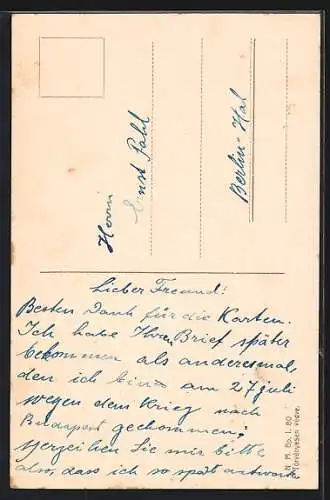 Herrn
Ernst Pahl
Berlin-Hal
Lieber Freund!
Besten Dank für die Karten.
Ich habe Ihren Brief später
bekommen als anderesmal,
den ich bin am 27 juli
wegen dem Krieg nach
Budapest gekommen;
verzeihen Sie mir bitte
also, dass ich so spät antworte
N. M. Bp. I. 80
Törvényesen védve.